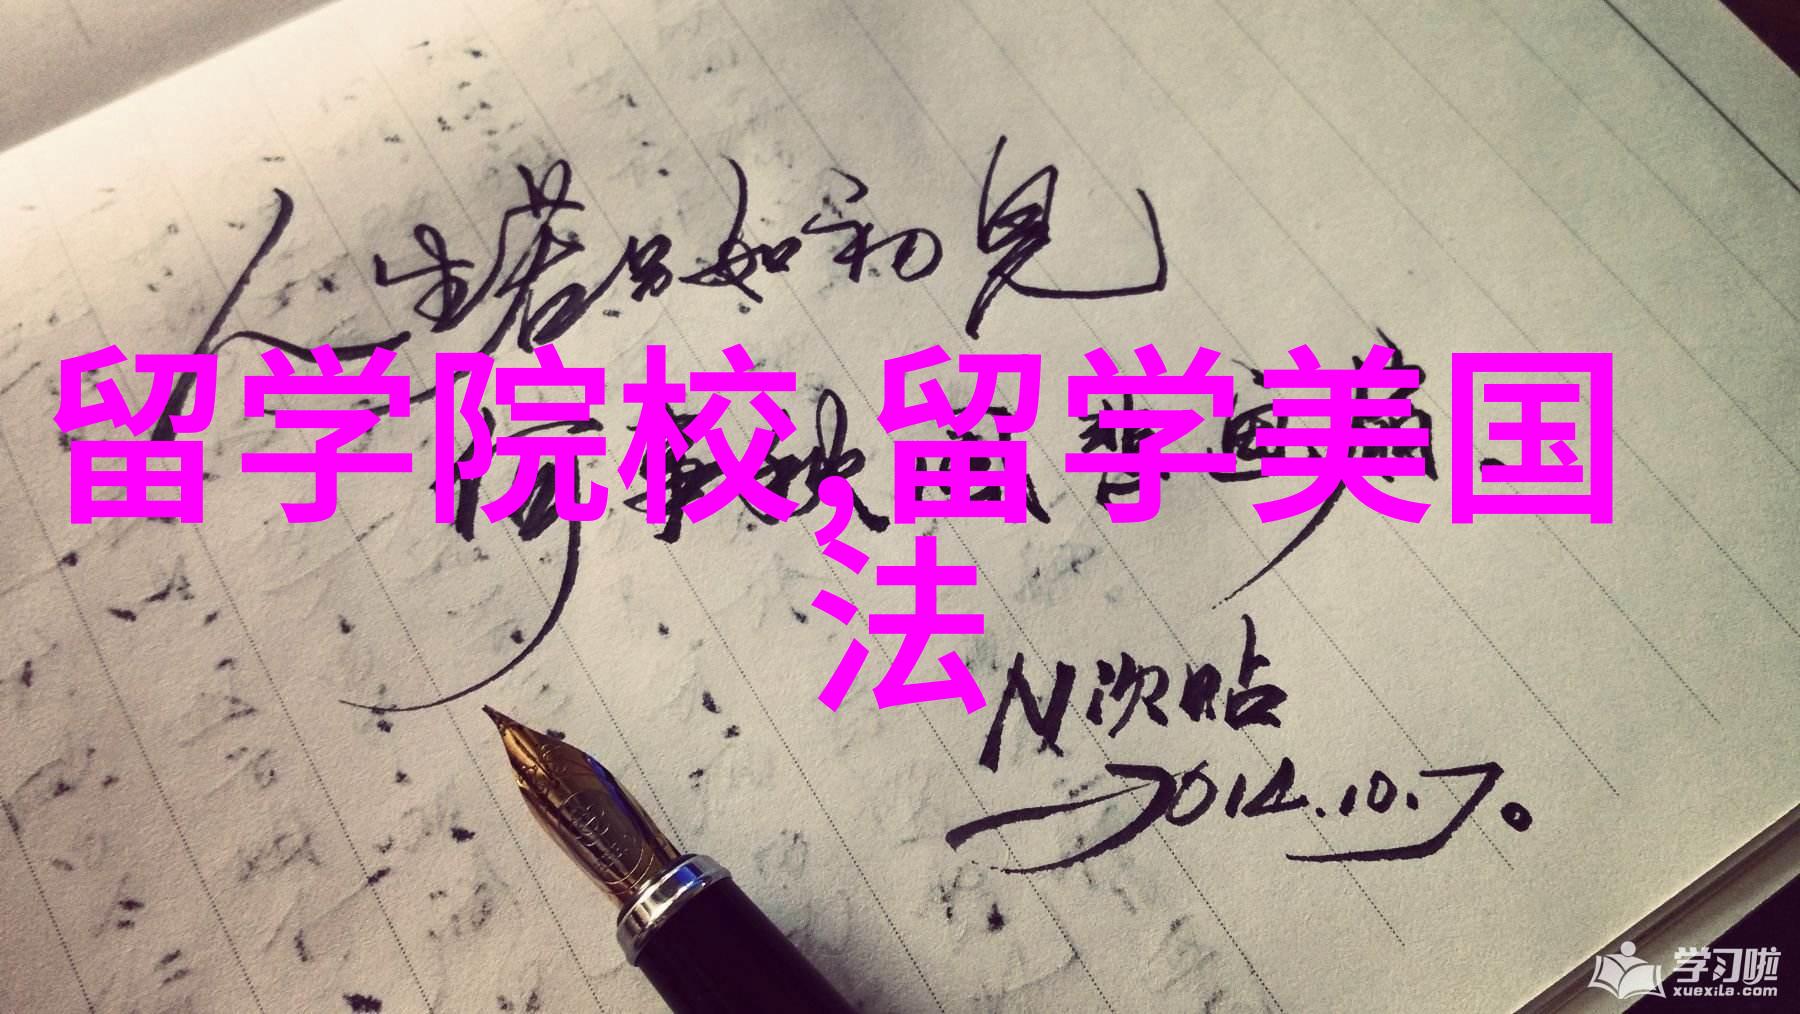 人生若只如初见
何事秋风悲画扇
留学院校,留学美国
法
N次贴
2014.10.7。
学习啦
xuexila.com